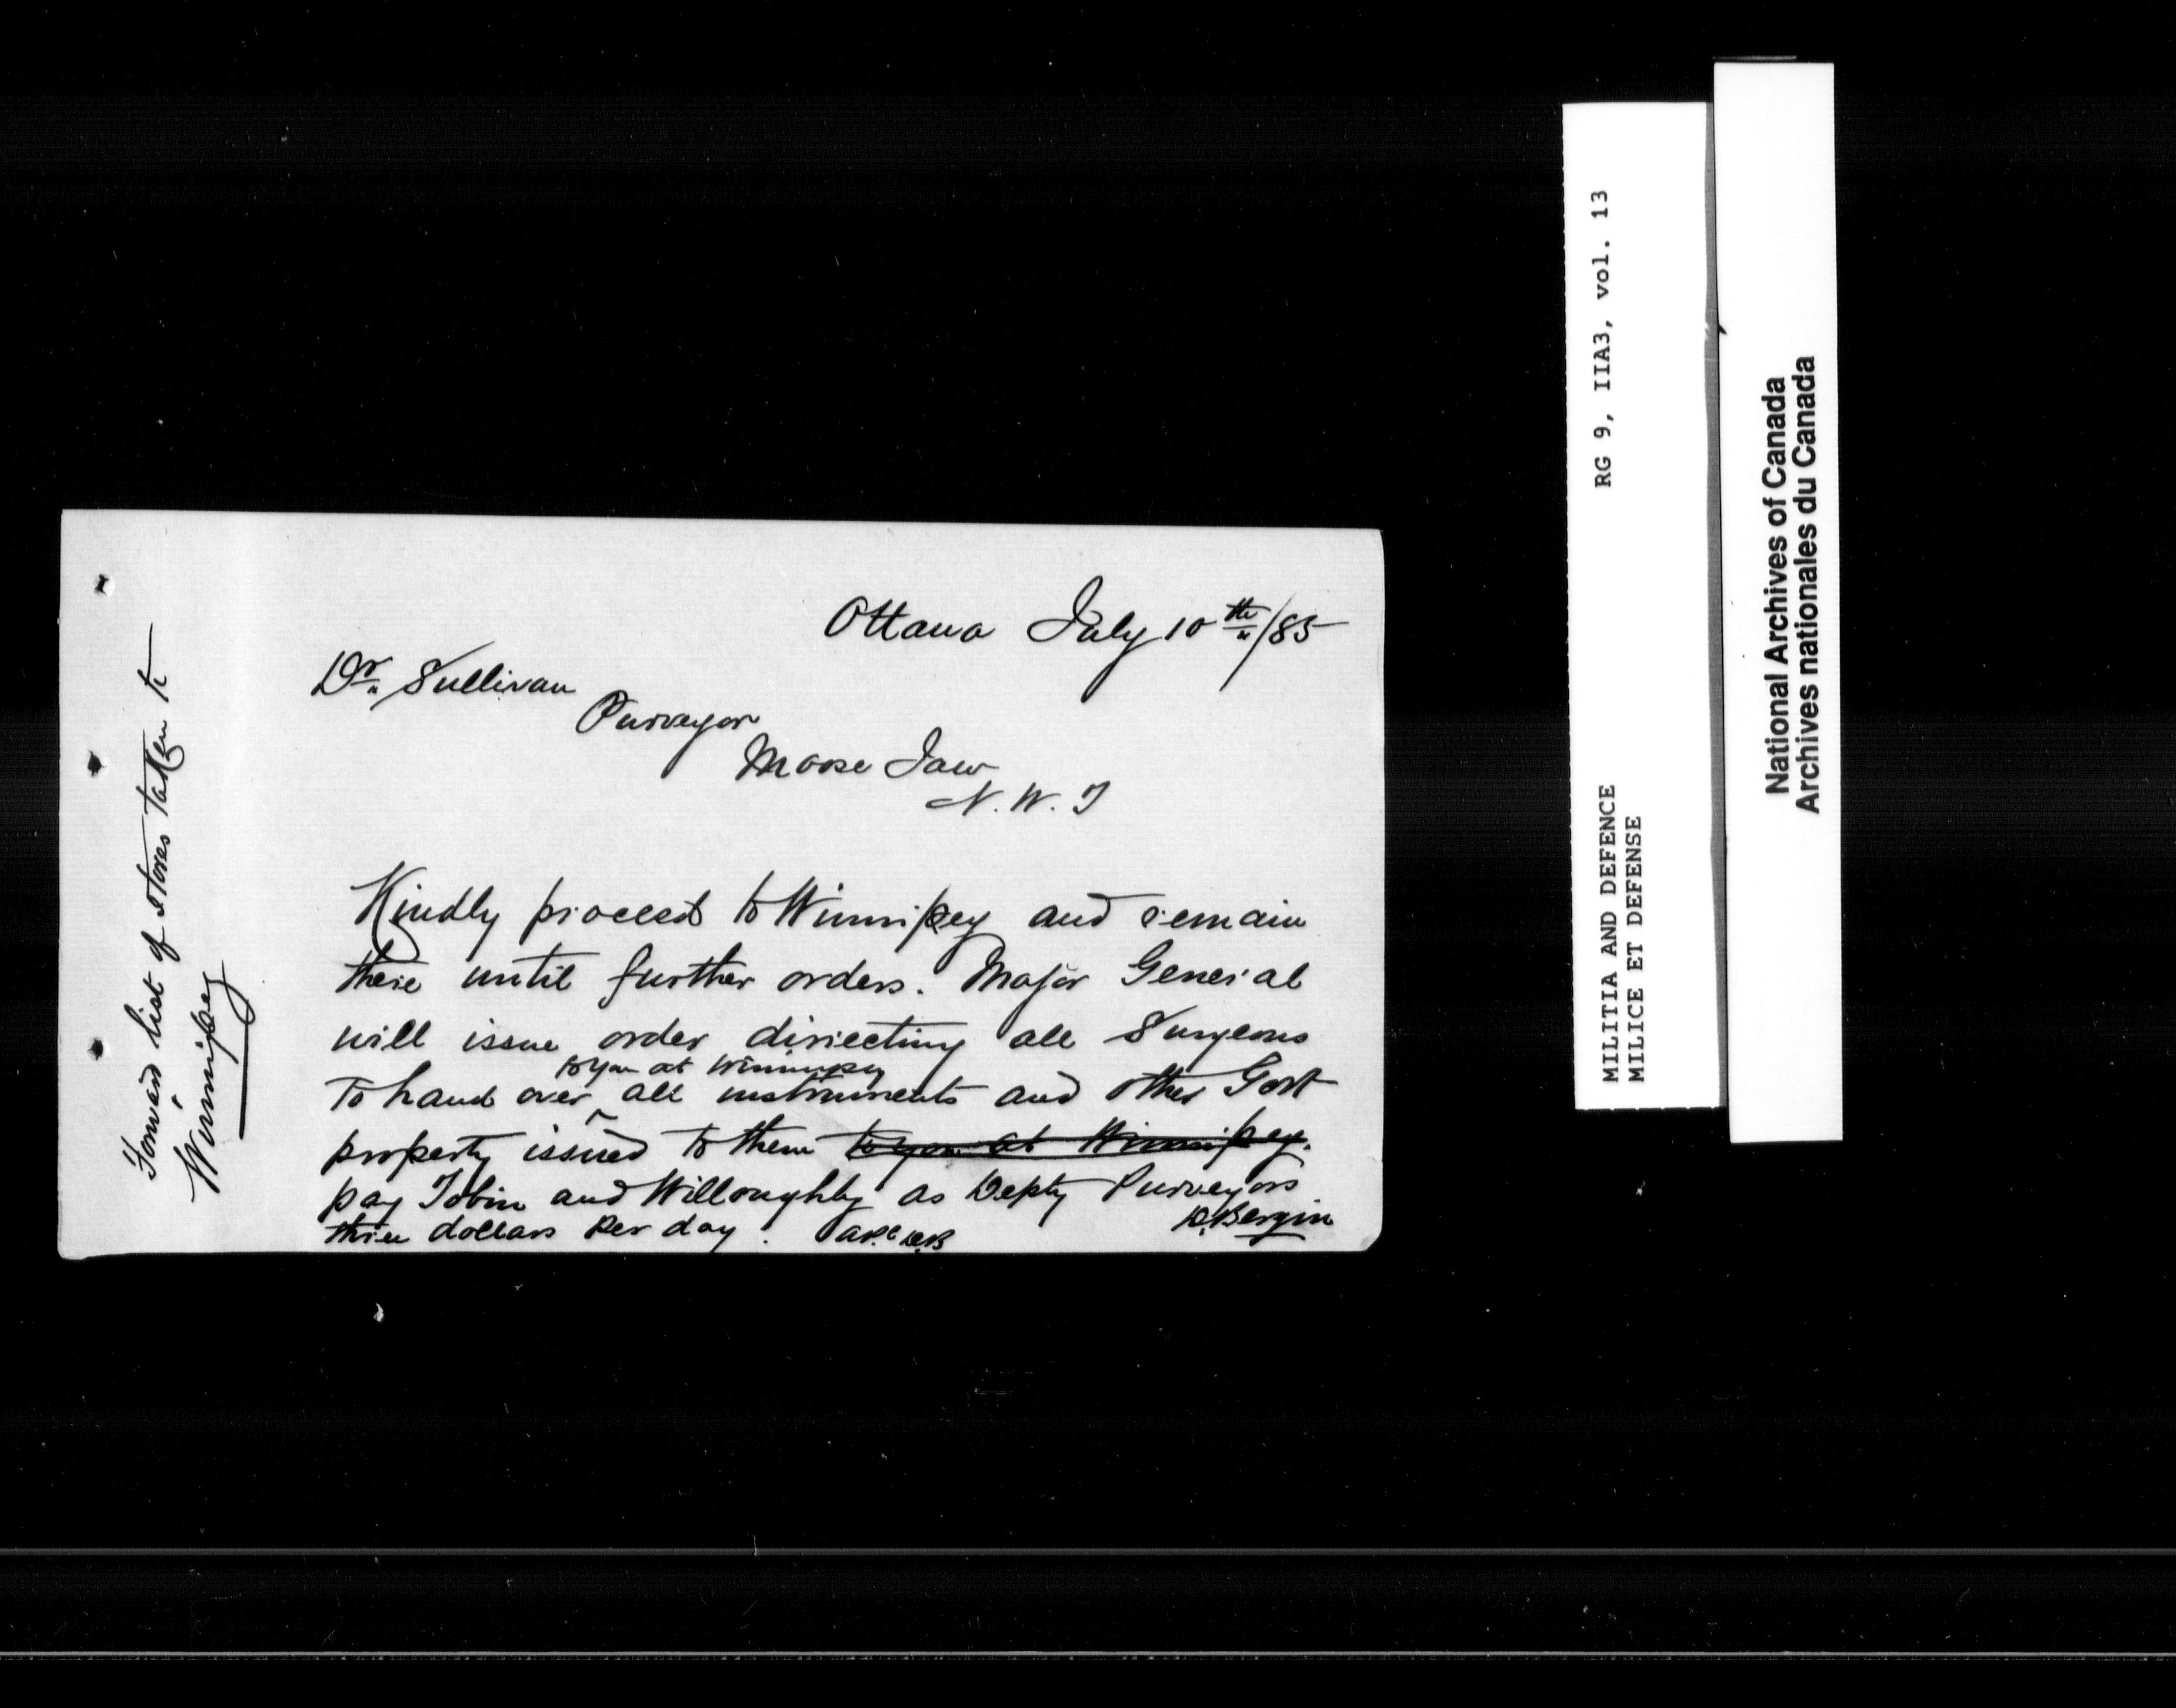 Ottawa July 10th/85
Dr. Sullivan
Purveyor
Moose Jaw
N. W. T
Kindly proceed to Winnipeg and remain
there until further orders. Major General
will issue order directing all Surgeons
to you at Winnipeg
To hand over all instruments and other Govt
property issued to them to you at Winnipeg.
pay Tobin and Willoughby as Depty Purveyors
three dollars per day.
D. Bergin
Forward list of stores taken to
Winnipeg
RG 9, IIA3, vol. 13
MILITIA AND DEFENCE
MILICE ET DEFENSE
National Archives of Canada
Archives nationales du Canada